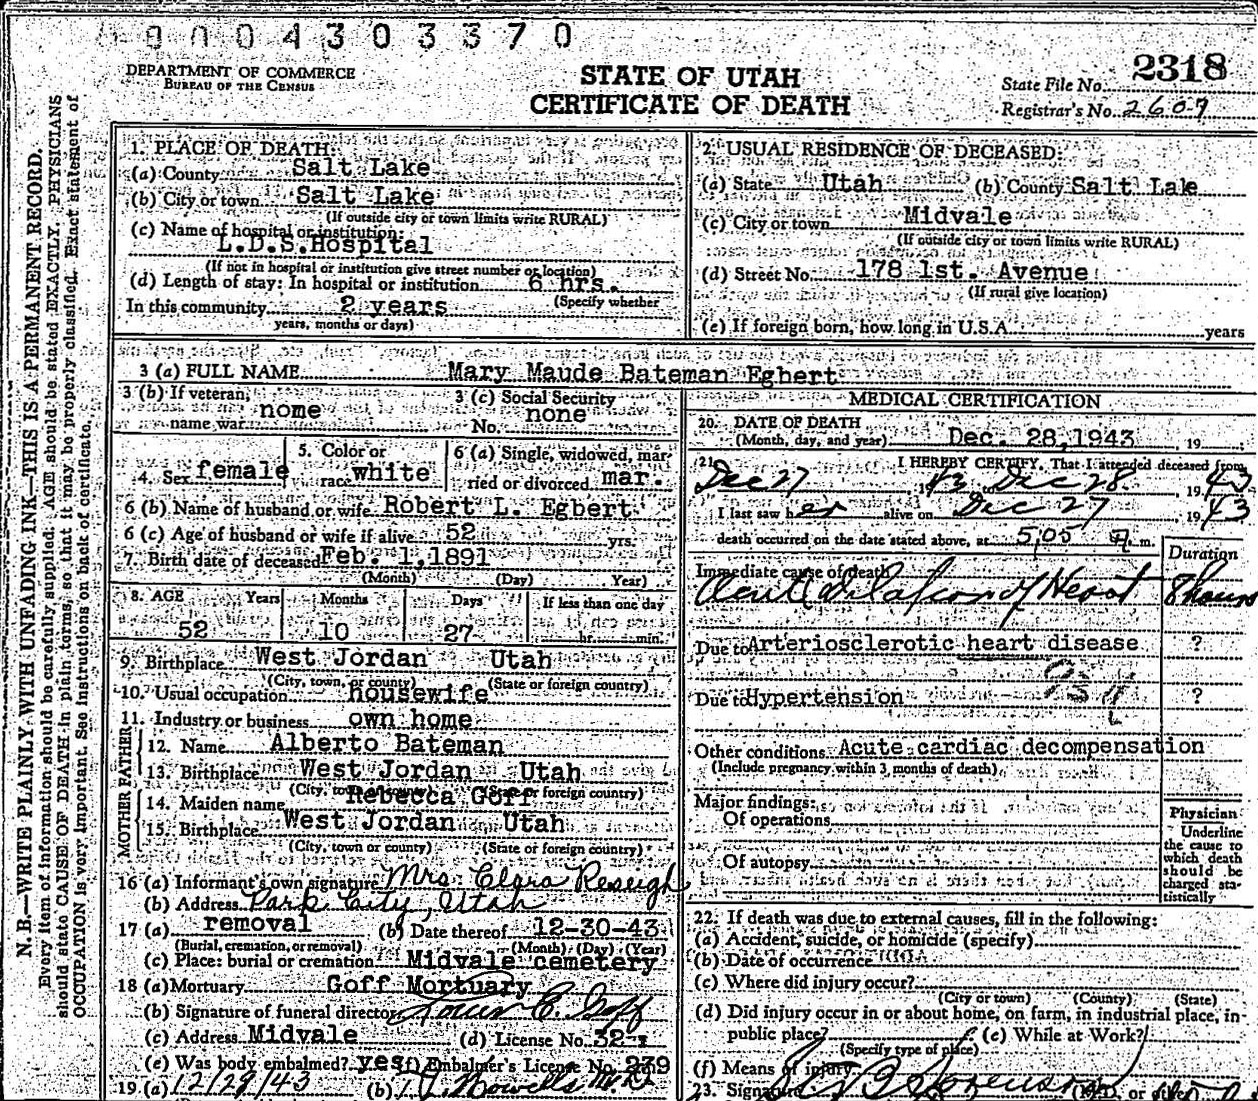 9000430 3370
DEPARTMENT OF COMMERCE
BUREAU OF THE CENSUS
STATE OF UTAH
CERTIFICATE OF DEATH
State File No. 2318
Registrar's No. 2609
N. B.—WRITE PLAINLY WITH UNFADING INK—THIS IS A PERMANENT RECORD.
Every item of information should be carefully supplied. AGE should be stated EXACTLY. PHYSICIANS
should state CAUSE OF DEATH in plain terms, so that it may be properly classified. Exact statement of
OCCUPATION is very important. See instructions on back of certificate.
1. PLACE OF DEATH:
(a) County Salt Lake
(b) City or town Salt Lake
(If outside city or town limits write RURAL)
(c) Name of hospital or institution:
L.D.S.Hospital
(If not in hospital or institution give street number or location)
(d) Length of stay: In hospital or institution 6 hrs.
(Specify whether
In this community 2 years
years, months or days)
2. USUAL RESIDENCE OF DECEASED:
(a) State Utah (b) County Salt Lake
(c) City or town Midvale
(If outside city or town limits write RURAL)
(d) Street No. 178 1st. Avenue
(If rural give location)
(e) If foreign born, how long in U.S.A. years
3 (a) FULL NAME Mary Maude Bateman Egbert
3 (b) If veteran,
name war nome
3 (c) Social Security
No. none
4. Sex female
5. Color or
race white
6 (a) Single, widowed, mar-
ried or divorced mar.
6 (b) Name of husband or wife Robert L. Egbert
6 (c) Age of husband or wife if alive 52 yrs.
7. Birth date of deceased Feb. 1,1891
(Month) (Day) Year)
8. AGE Years Months Days If less than one day
52 10 27 hr. min.
9. Birthplace West Jordan Utah
(City, town, or county) (State or foreign country)
10. Usual occupation housewife
11. Industry or business own home
FATHER
12. Name Alberto Bateman
13. Birthplace West Jordan Utah
(City, town or county) (State or foreign country)
MOTHER
14. Maiden name Rebecca Goff
15. Birthplace West Jordan Utah
(City, town or county) (State or foreign country)
16 (a) Informant's own signature Mrs. Clara Reseigh
(b) Address Park City, Utah
17 (a) removal (b) Date thereof 12-30-43
(Burial, cremation, or removal) (Month) (Day) (Year)
(c) Place: burial or cremation Midvale cemetery
18 (a) Mortuary Goff Mortuary
(b) Signature of funeral director E. Goff
(c) Address Midvale (d) License No. 32-
(e) Was body embalmed? yes (f) Embalmer's License No. 239
19. (a) 12/29/43 (b)
MEDICAL CERTIFICATION
20. DATE OF DEATH
(Month, day, and year) Dec. 28,1943 19
21. I HEREBY CERTIFY, That I attended deceased from
Dec 27 1943 Dec 28 1943
I last saw her alive on Dec 27 1943
death occurred on the date stated above, at 5;05 A. m.
Duration
Immediate cause of death
Acute dilation of Heart 8 hours
Due to Arteriosclerotic heart disease ?
Due to Hypertension ?
Other conditions Acute cardiac decompensation
(Include pregnancy within 3 months of death)
Major findings:
Of operations
Of autopsy
Physician
Underline
the cause to
which death
should be
charged sta-
tistically
22. If death was due to external causes, fill in the following:
(a) Accident, suicide, or homicide (specify)
(b) Date of occurrence
(c) Where did injury occur?
(City or town) (County) (State)
(d) Did injury occur in or about home, on farm, in industrial place, in-
public place? (e) While at Work?
(Specify type of place)
(f) Means of injury
23. Signature Sorenson (M.D. or other)